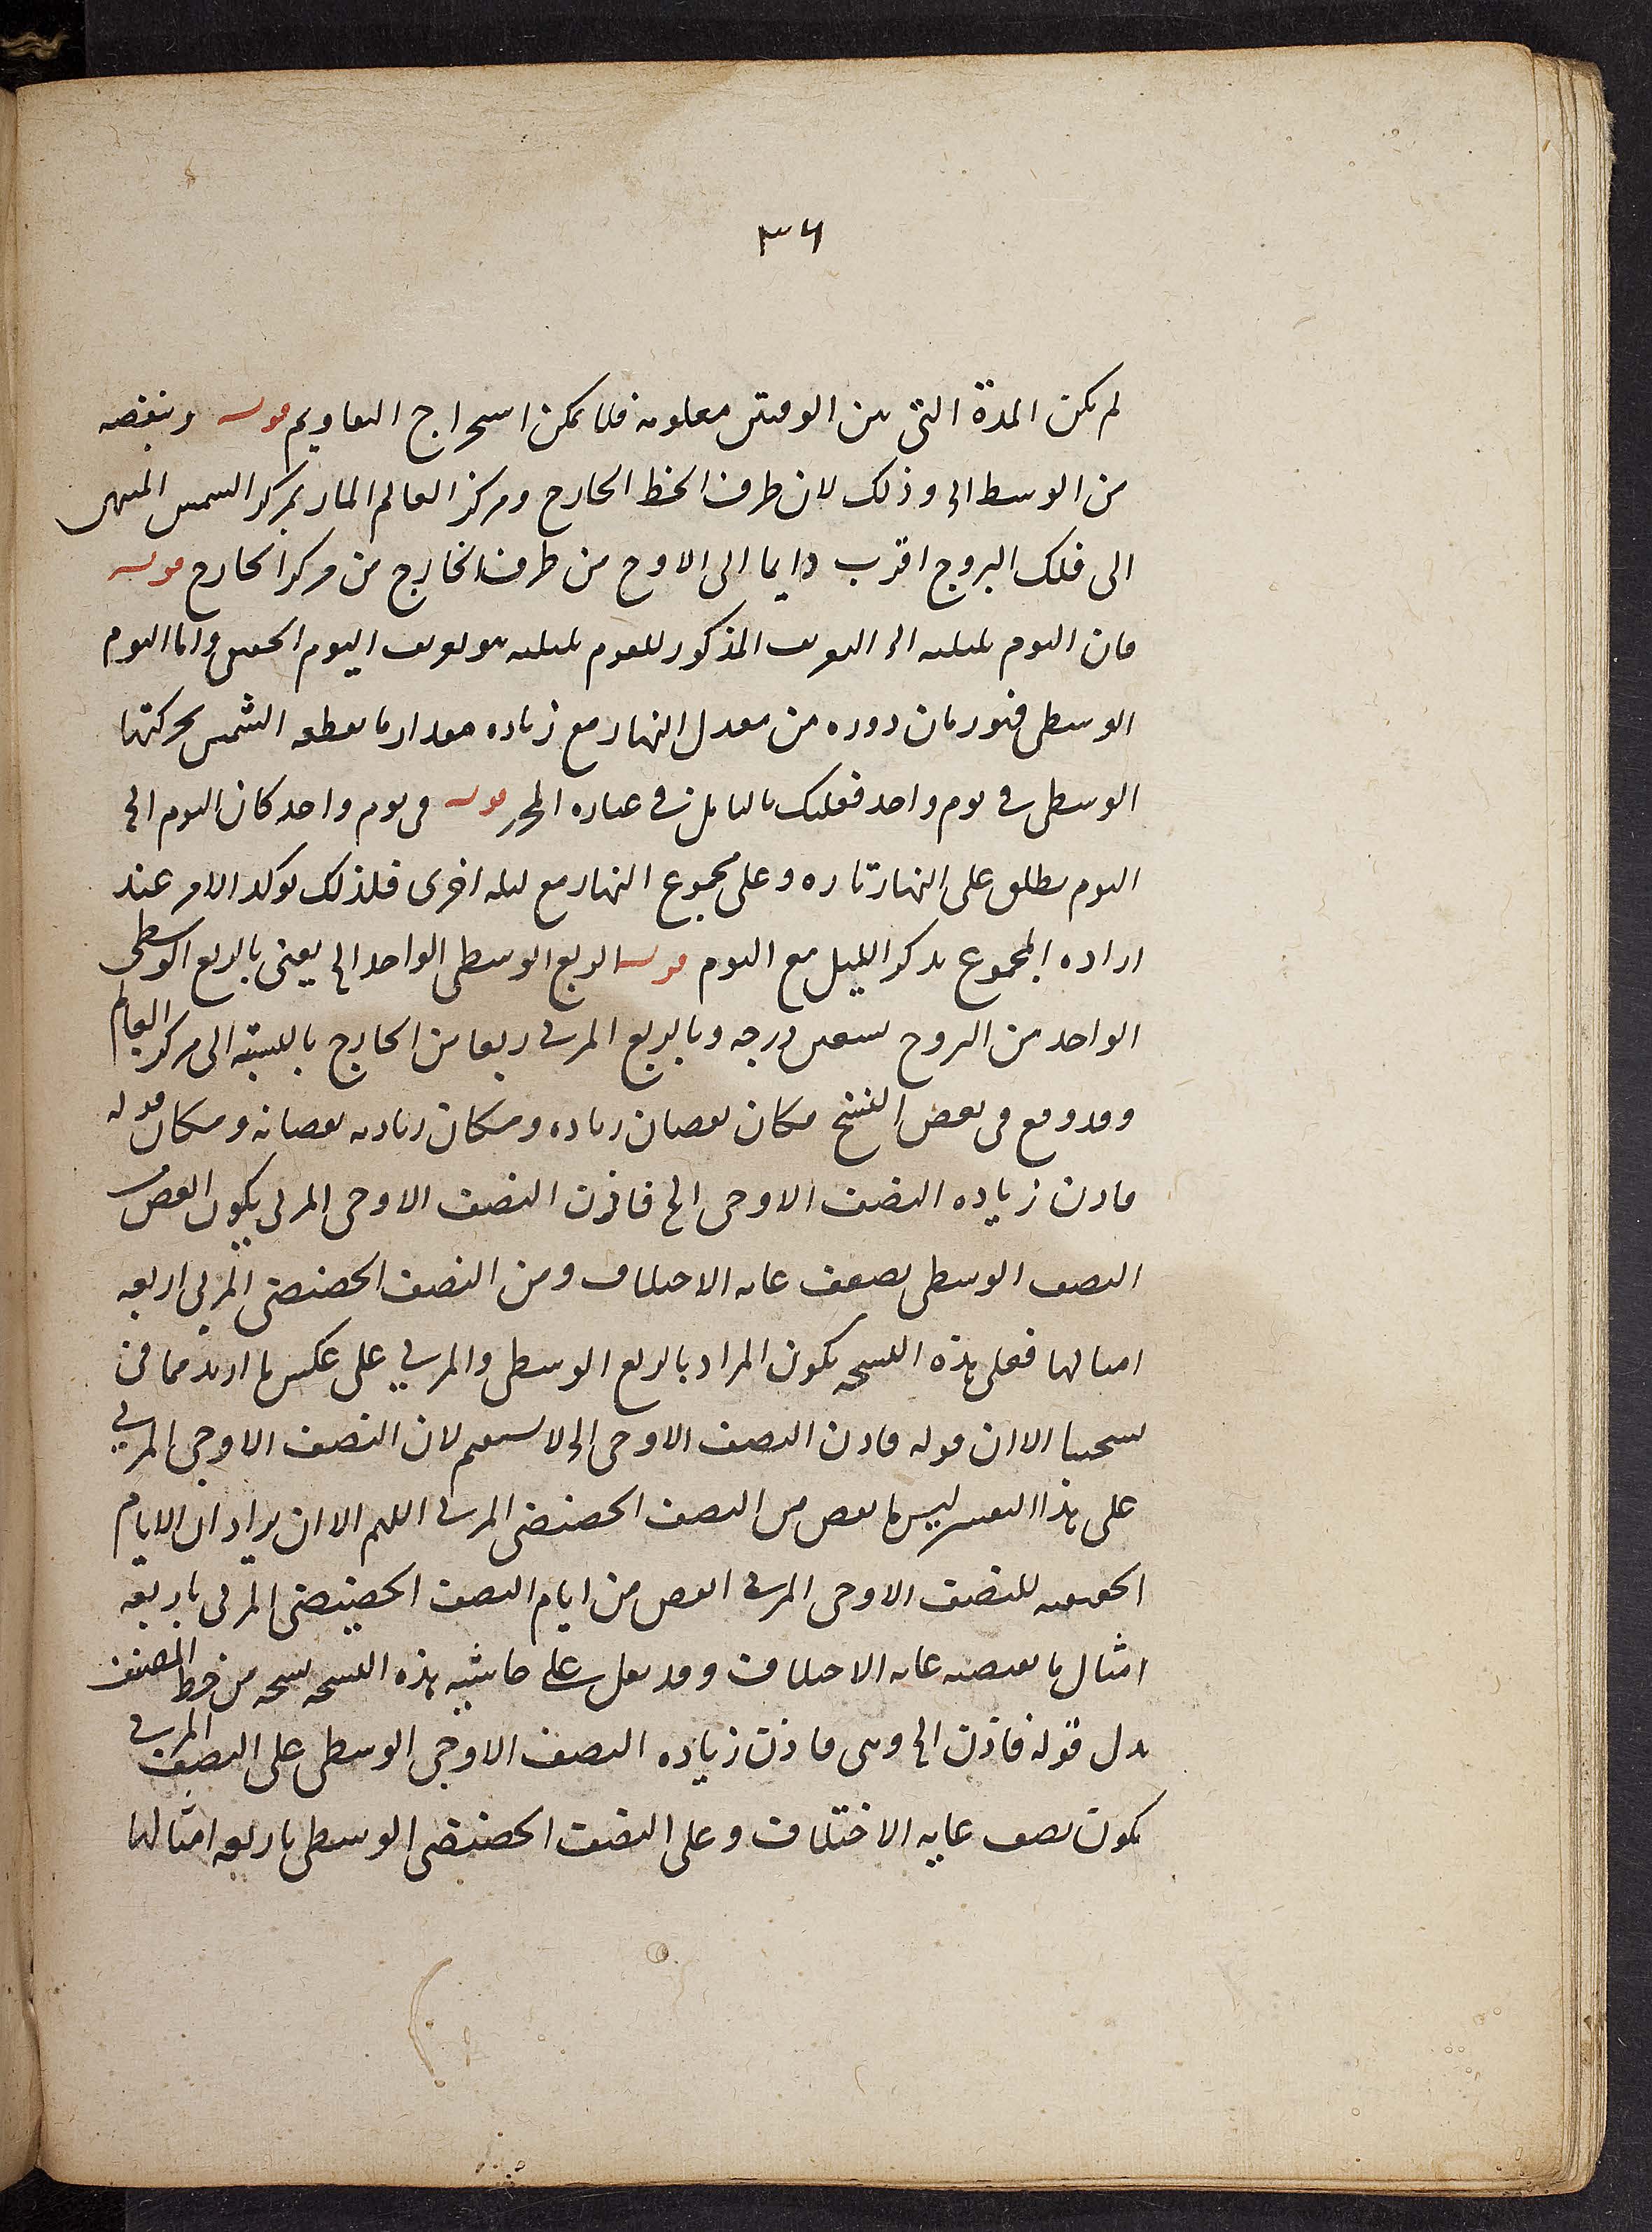 ٣٦
لم يكن المدة التى بين الوقتين معلومه فلا يمكن استخراج التقاويم قوله وينقصه
من الوسط الخ وذلك لان طرف الخط الخارج ومركز العالم المار بمركز الشمس المنتهى
الى فلك البروج اقرب دايما الى الاوج من طرف الخارج من مركز الخارج قوله
فان اليوم بليلته الخ التعريف المذكور لليوم بليلته هو تعريف اليوم الحقيقى واما اليوم
الوسطى فهو زمان دوره من معدل النهار مع زياده مقدار ما يقطعه الشمس بحركتها
الوسطى فى يوم واحد فعليك بالتامل فى عباره المحرر قوله فى يوم واحد كان اليوم الخ
اليوم يطلق على النهار تاره وعلى مجموع النهار مع ليله اخرى فلذلك يوكد الامر عند
اراده المجموع بذكر الليل مع اليوم قوله الربع الوسطى الواحد الخ يعنى بالربع الوسطى
الواحد من البروج تسعين درجه وبالربع المرئى ربعا من الخارج بالنسبة الى مركز العالم
وقد وقع فى بعض النسخ مكان نقصان زياده ومكان زيادته نقصانه ومكان قوله
فاذن زياده النصف الاوجى الخ فاذن النصف الاوجى المرئى يكون انقص من
النصف الوسطى بضعف غايه الاختلاف ومن النصف الحضيضى المرئى اربعه
امثالها فعلى هذه النسخه يكون المراد بالربع الوسطى والمرئى على عكس ما اريد مما فى
نسختنا الا ان قوله فاذن النصف الاوجى الخ لا يستقيم لان النصف الاوجى المرئى
على هذا التفسير ليس بانقص من النصف الحضيضى المرئى اللهم الا ان يراد ان الايام
الحقيقيه للنصف الاوجى المرئى انقص من ايام النصف الحضيضى المرئى باربعه
امثال ما نقصته غايه الاختلاف وقد نقل على حاشيه هذه النسخه نسخه من خط المصنف
بدل قوله فاذن الخ وهى فاذن زياده النصف الاوجى الوسطى على النصف المرئى
يكون نصف غايه الاختلاف وعلى النصف الحضيضى الوسطى باربعه امثالها